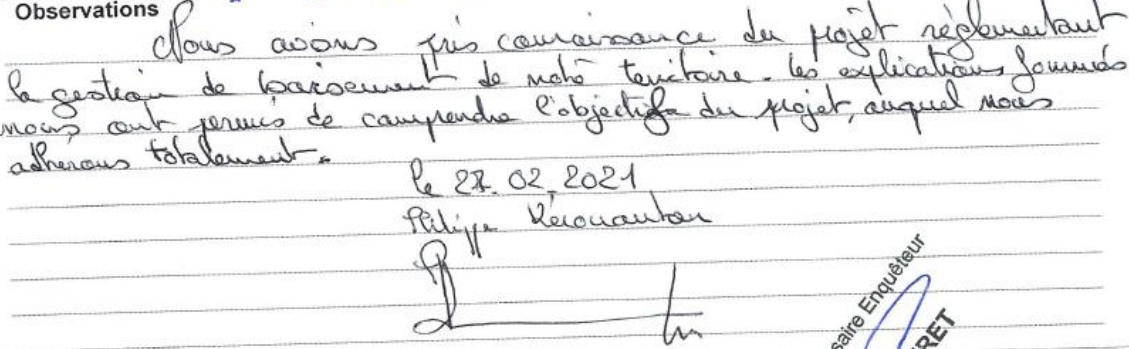 Observations
Nous avons pris connaissance du projet réglementant
la gestion de de notre territoire. les explications fournies
nous ont permis de comprendre l'objectif du projet, auquel nous
adhérons totalement.
le 27.02.2021
Philippe Kerouanton
saire Enquêteur
RET